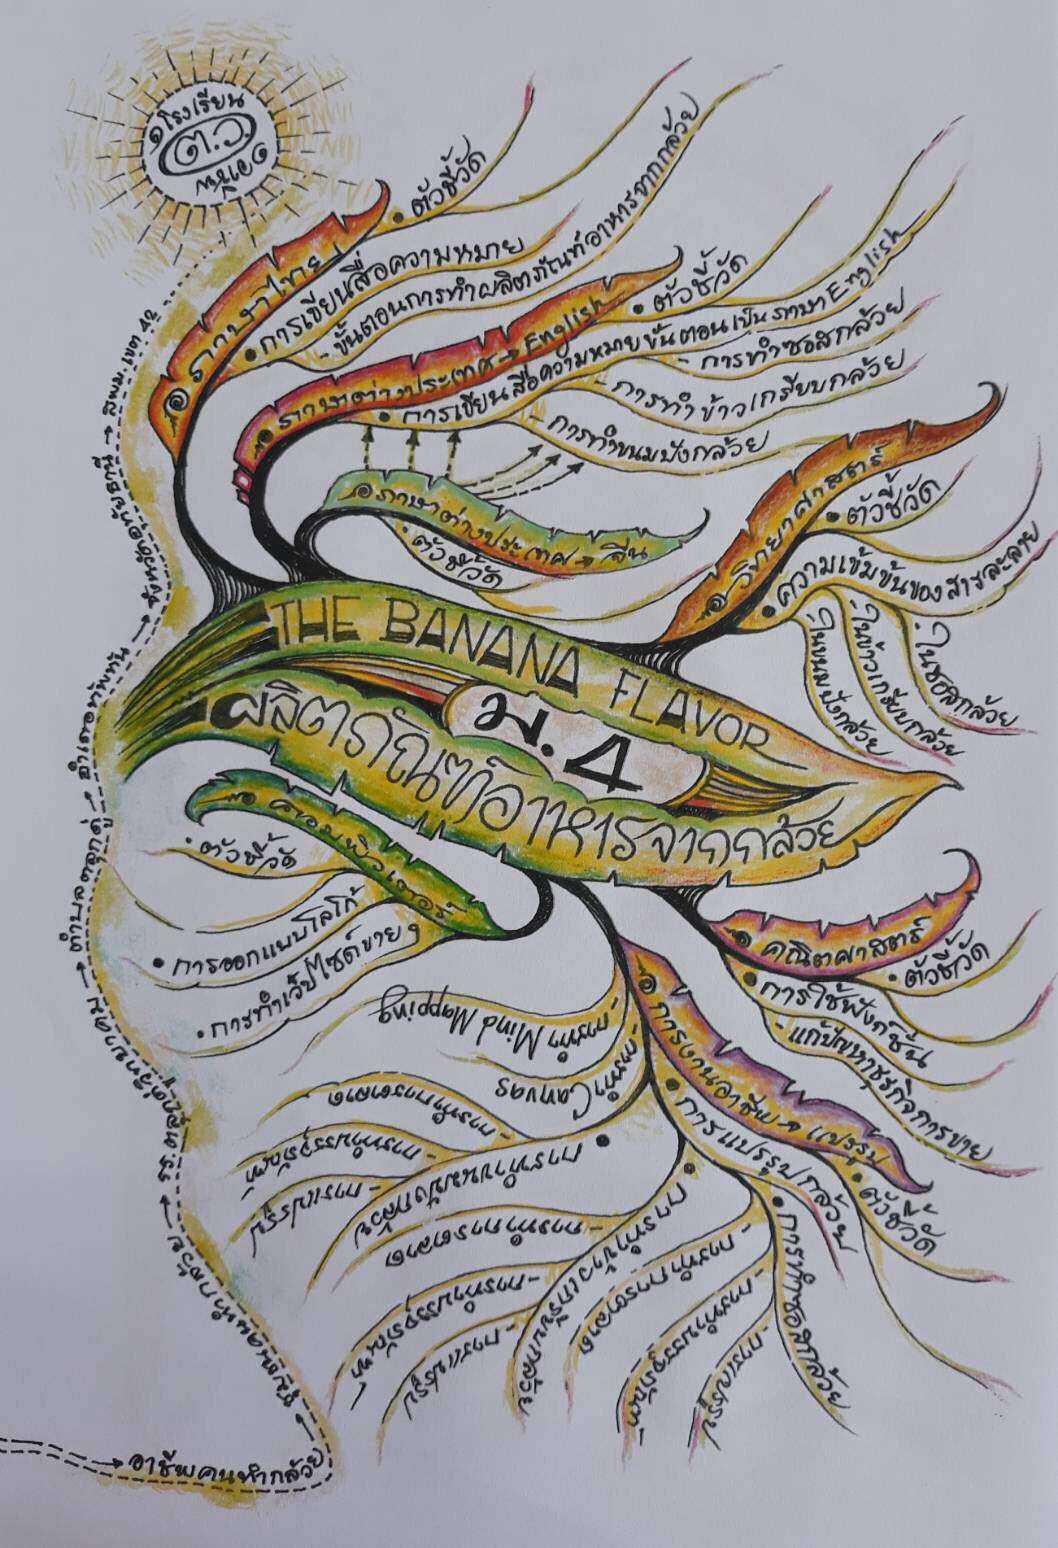 โรงเรียน
ต.ว
ภาษาไทย
ตัวชี้วัด
การเขียนสื่อความหมาย
- ขั้นตอนการทำผลิตภัณฑ์อาหารจากกล้วย
ภาษาต่างประเทศ → English
ตัวชี้วัด
การเขียนสื่อความหมายขั้นตอนเป็นภาษา English
- การทำซอสกล้วย
- การทำข้าวเกรียบกล้วย
- การทำขนมปังกล้วย
ภาษาต่างประเทศ → จีน
ตัวชี้วัด
วิทยาศาสตร์
ตัวชี้วัด
ความเข้มข้นของสารละลาย
ในขนมปังกล้วย
ในข้าวเกรียบกล้วย
ในซอสกล้วย
THE BANANA FLAVOR
ม.4
ผลิตภัณฑ์อาหารจากกล้วย
คอมพิวเตอร์
ตัวชี้วัด
การออกแบบโลโก้
การทำเว็ปไซต์ขาย
คณิตศาสตร์
ตัวชี้วัด
การใช้ฟังก์ชัน
- แก้ปัญหาธุรกิจการขาย
การงานอาชีพ → แปรรูป
ตัวชี้วัด
การแปรรูปกล้วย
- การทำ Mind Mapping
- การทำ Canvas
การทำขนมปังกล้วย
- การทำการตลาด
- การทำบรรจุภัณฑ์
- การแปรรูป
การทำข้าวเกรียบกล้วย
- การทำการตลาด
- การทำบรรจุภัณฑ์
- การแปรรูป
การทำซอสกล้วย
- การทำการตลาด
- การทำบรรจุภัณฑ์
- การแปรรูป
อาชีพคนทำกล้วย